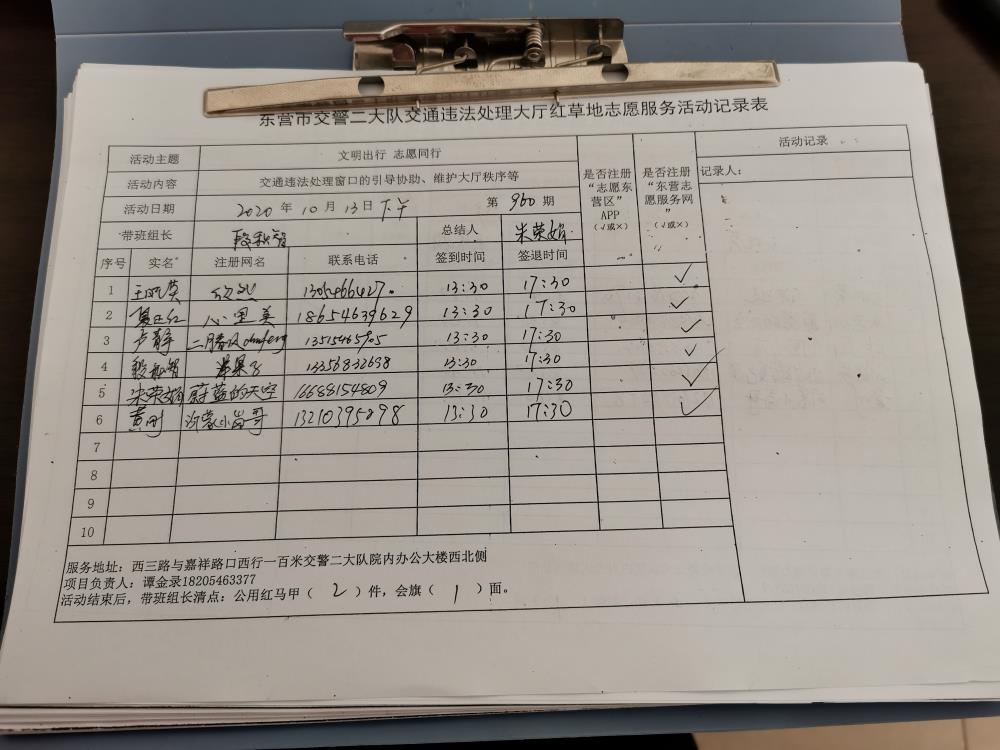 东营市交警二大队交通违法处理大厅红草地志愿服务活动记录表
活动主题 文明出行 志愿同行
活动内容 交通违法处理窗口的引导协助、维护大厅秩序等
活动日期 2020 年 10 月 13 日 下午 第 960 期
带班组长 段秋智 总结人 朱荣娟
序号 实名 注册网名 联系电话 签到时间 签退时间
是否注册“志愿东营区”APP（√或×）
是否注册“东营志愿服务网”（√或×）
活动记录
记录人：
1 13:30 17:30 ✓
2 心里美 18654639629 13:30 17:30 ✓
3 卢静 13:30 17:30 ✓
4 13356832698 13:30 17:30 ✓
5 朱荣娟 蔚蓝的天空 16688154809 13:30 17:30 ✓
6 黄刚 沂蒙小苗哥 13210395898 13:30 17:30 ✓
7
8
9
10
服务地址：西三路与嘉祥路口西行一百米交警二大队院内办公大楼西北侧
项目负责人：谭金录18205463377
活动结束后，带班组长清点：公用红马甲（ 2 ）件，会旗（ 1 ）面。